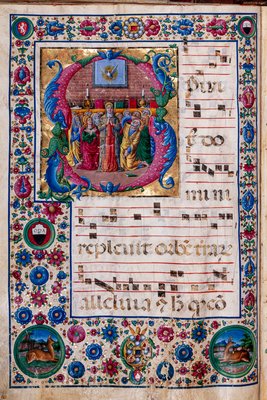 Spiri
t' do
mini
repleuit orbē terrar
alleluia et h̄ quod